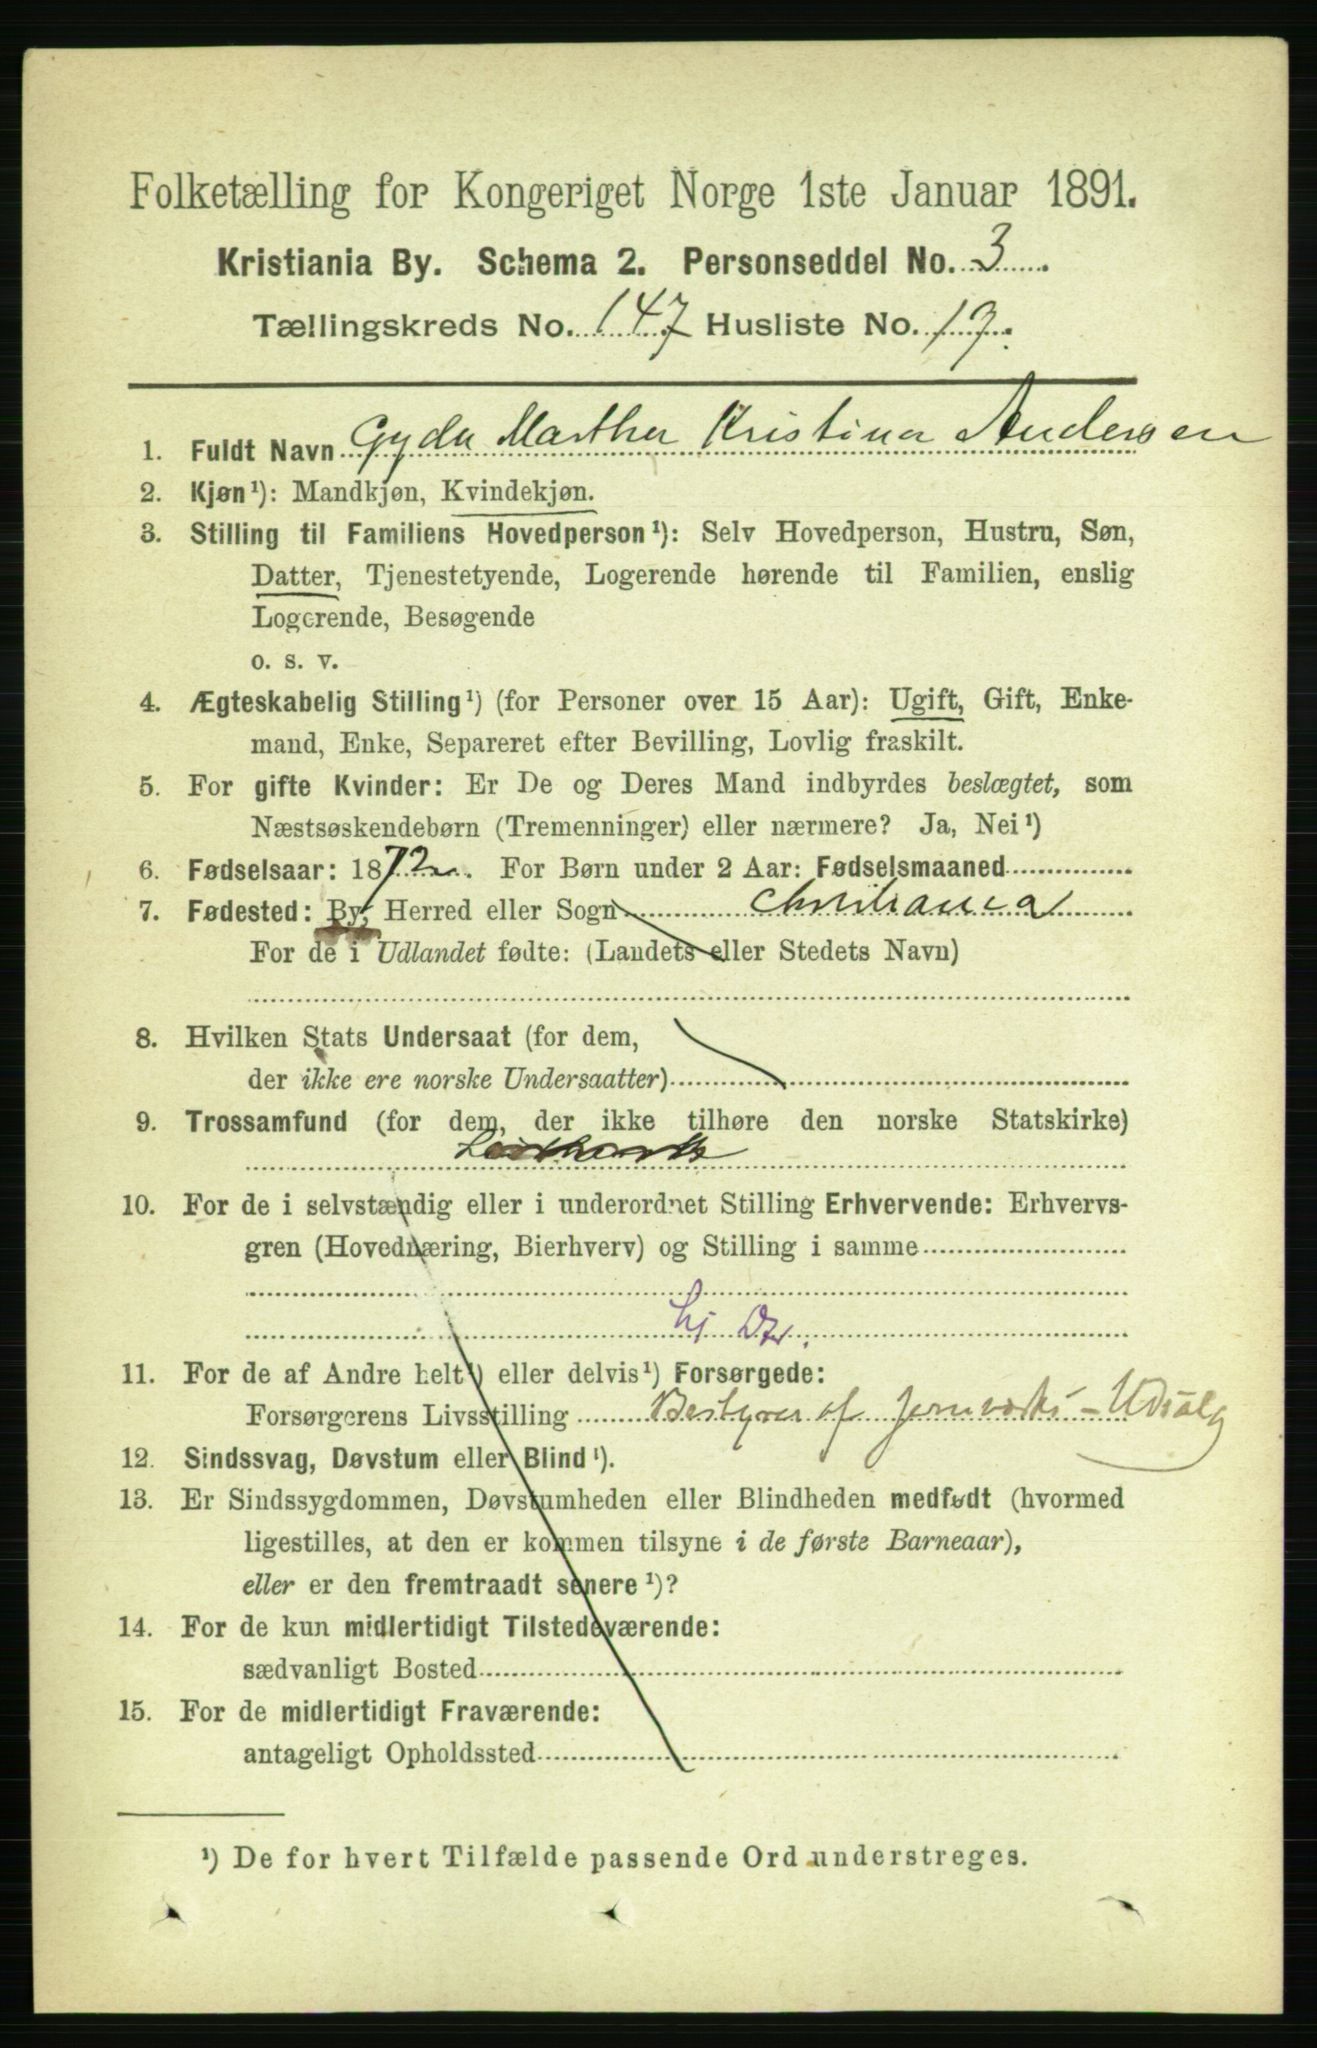 Folketælling for Kongeriget Norge 1ste Januar 1891.
Kristiania By. Schema 2. Personseddel No. 3
Tællingskreds No. 147 Husliste No. 19.
1. Fuldt Navn Gyda Martha Kristina Andersen
2. Kjøn¹): Mandkjøn, Kvindekjøn.
3. Stilling til Familiens Hovedperson¹): Selv Hovedperson, Hustru, Søn,
Datter, Tjenestetyende, Logerende hørende til Familien, enslig
Logerende, Besøgende
o. s. v.
4. Ægteskabelig Stilling¹) (for Personer over 15 Aar): Ugift, Gift, Enke-
mand, Enke, Separeret efter Bevilling, Lovlig fraskilt.
5. For gifte Kvinder: Er De og Deres Mand indbyrdes beslægtet, som
Næstsøskendebørn (Tremenninger) eller nærmere? Ja, Nei¹)
6. Fødselsaar: 1872. For Børn under 2 Aar: Fødselsmaaned
7. Fødested: By, Herred eller Sogn Christiania
For de i Udlandet fødte: (Landets eller Stedets Navn)
8. Hvilken Stats Undersaat (for dem,
der ikke ere norske Undersaatter)
9. Trossamfund (for dem, der ikke tilhøre den norske Statskirke)
10. For de i selvstændig eller i underordnet Stilling Erhvervende: Erhvervs-
gren (Hovednæring, Bierhverv) og Stilling i samme
11. For de af Andre helt¹) eller delvis¹) Forsørgede:
Forsørgerens Livsstilling Bestyrer af Jernværks-Udsalg
12. Sindssvag, Døvstum eller Blind¹).
13. Er Sindssygdommen, Døvstumheden eller Blindheden medfødt (hvormed
ligestilles, at den er kommen tilsyne i de første Barneaar),
eller er den fremtraadt senere¹)?
14. For de kun midlertidigt Tilstedeværende:
sædvanligt Bosted
15. For de midlertidigt Fraværende:
antageligt Opholdssted
¹) De for hvert Tilfælde passende Ord understreges.